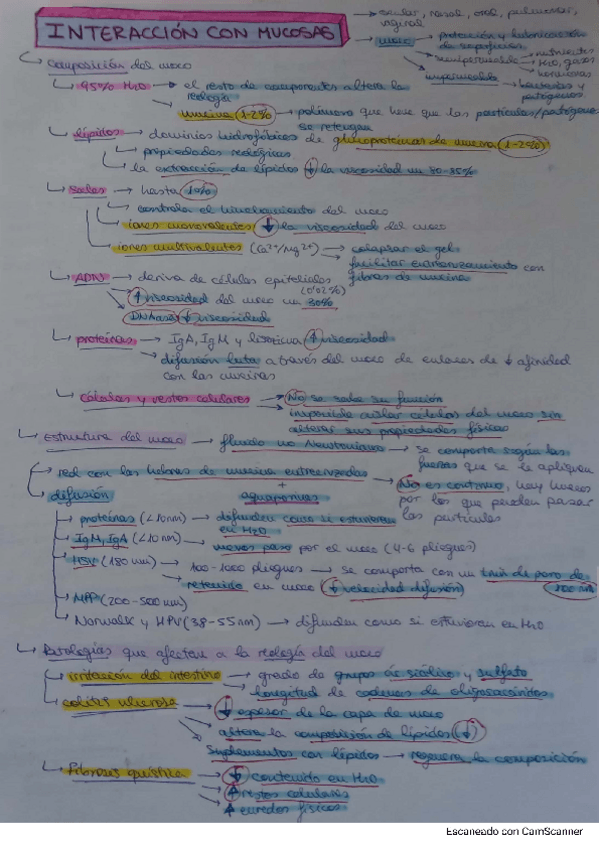 INTERACCIÓN CON MUCOSAS
→ ocular, nasal, oral, pulmonar, vaginal
→ moco → protección y lubricación de superficies
→ semipermeable → nutrientes
H2O, gases
hormonas
→ impermeable → bacterias y patógenos
Composición del moco
95% H2O → el resto de componentes altera la reología
→ mucina (1-2%) → polímero que hace que las partículas/patógenos se retengan
lípidos → dominios hidrofóbicos de glucoproteínas de mucina (1-2%)
→ propiedades reológicas
→ la extracción de lípidos ↓ la viscosidad un 80-85%
Sales → hasta 1%
→ controla el hinchamiento del moco
→ iones monovalentes ↓ la viscosidad del moco
→ iones multivalentes (Ca2+/Mg2+) → colapsar el gel
→ facilitar entrecruzamiento con fibras de mucina
ADN → deriva de células epiteliales (0'02%)
→ ↑ viscosidad del moco un 30%
→ DNAasas ↓ viscosidad
proteínas → IgA, IgM y lisozima ↑ viscosidad
→ difusión lenta a través del moco de enlaces de ↓ afinidad con las mucinas
Células y restos celulares → No se sabe su función
→ imposible aislar células del moco sin alterar sus propiedades físicas
Estructura del moco → fluido no Newtoniano → se comporta según las fuerzas que se le apliquen
red con las hebras de mucina entrecruzadas → No es continuo, hay huecos por los que pueden pasar las partículas
+
difusión
aquaporinas
proteínas (<10nm) → difunden como si estuvieran en H2O
IgM, IgA (<10nm) → menos paso por el moco (4-6 pliegues)
HSV (180 nm) → 100-1000 pliegues → se comporta con un tamaño de poro de 100 nm
→ retenido en moco (↓ velocidad difusión)
MPP (200-500 nm)
Norwalk y HPV (38-55nm) → difunden como si estuvieran en H2O
Patologías que afectan a la reología del moco
irritación del intestino → grado de grupos ác siálico y sulfato
→ longitud de cadenas de oligosacáridos
colitis ulcerosa → ↓ espesor de la capa de moco
→ altera la composición de lípidos (↓)
→ suplementos con lípidos → regenera la composición
Fibrosis quística → ↓ contenido en H2O
→ ↑ restos celulares
→ ↑ enredos físicos
Escaneado con CamScanner